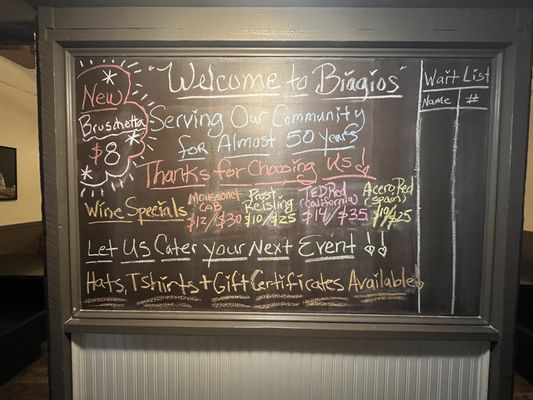 "Welcome to Biagios"
New
Bruschetta
$8
Serving Our Community
for Almost 50 years
Thanks for Choosing Us!
Wine Specials
Moussonet
CAB
$12/$30
Prost
Reisling
$10/$25
TED Red
(California)
$14/$35
Acero Red
(Spain)
$10/$25
Let Us Cater your Next Event !!
Hats, Tshirts + Gift Certificates Available!
Wait List
Name #